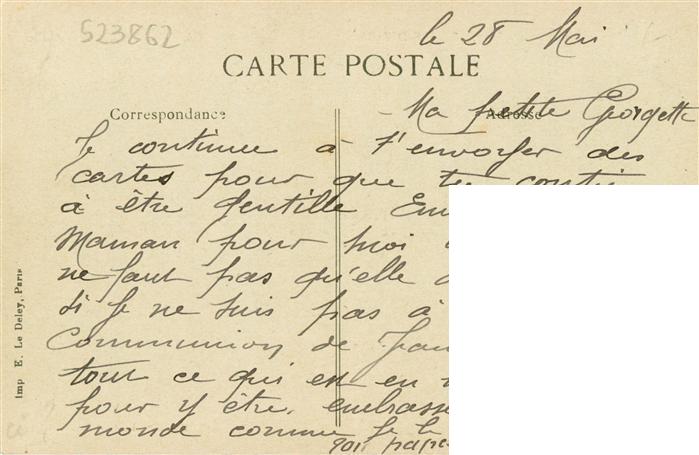 523862
le 28 Mai
CARTE POSTALE
Correspondance
Adresse
Ma petite Georgette
Je continue à t'envoyer des
cartes pour que tu
à être gentille
Maman pour moi
ne faut pas qu'elle
si je ne suis pas à
Communion de
tout ce qui est en
pour y être, embrasse
monde comme je
papa
Imp E. Le Deley, Paris